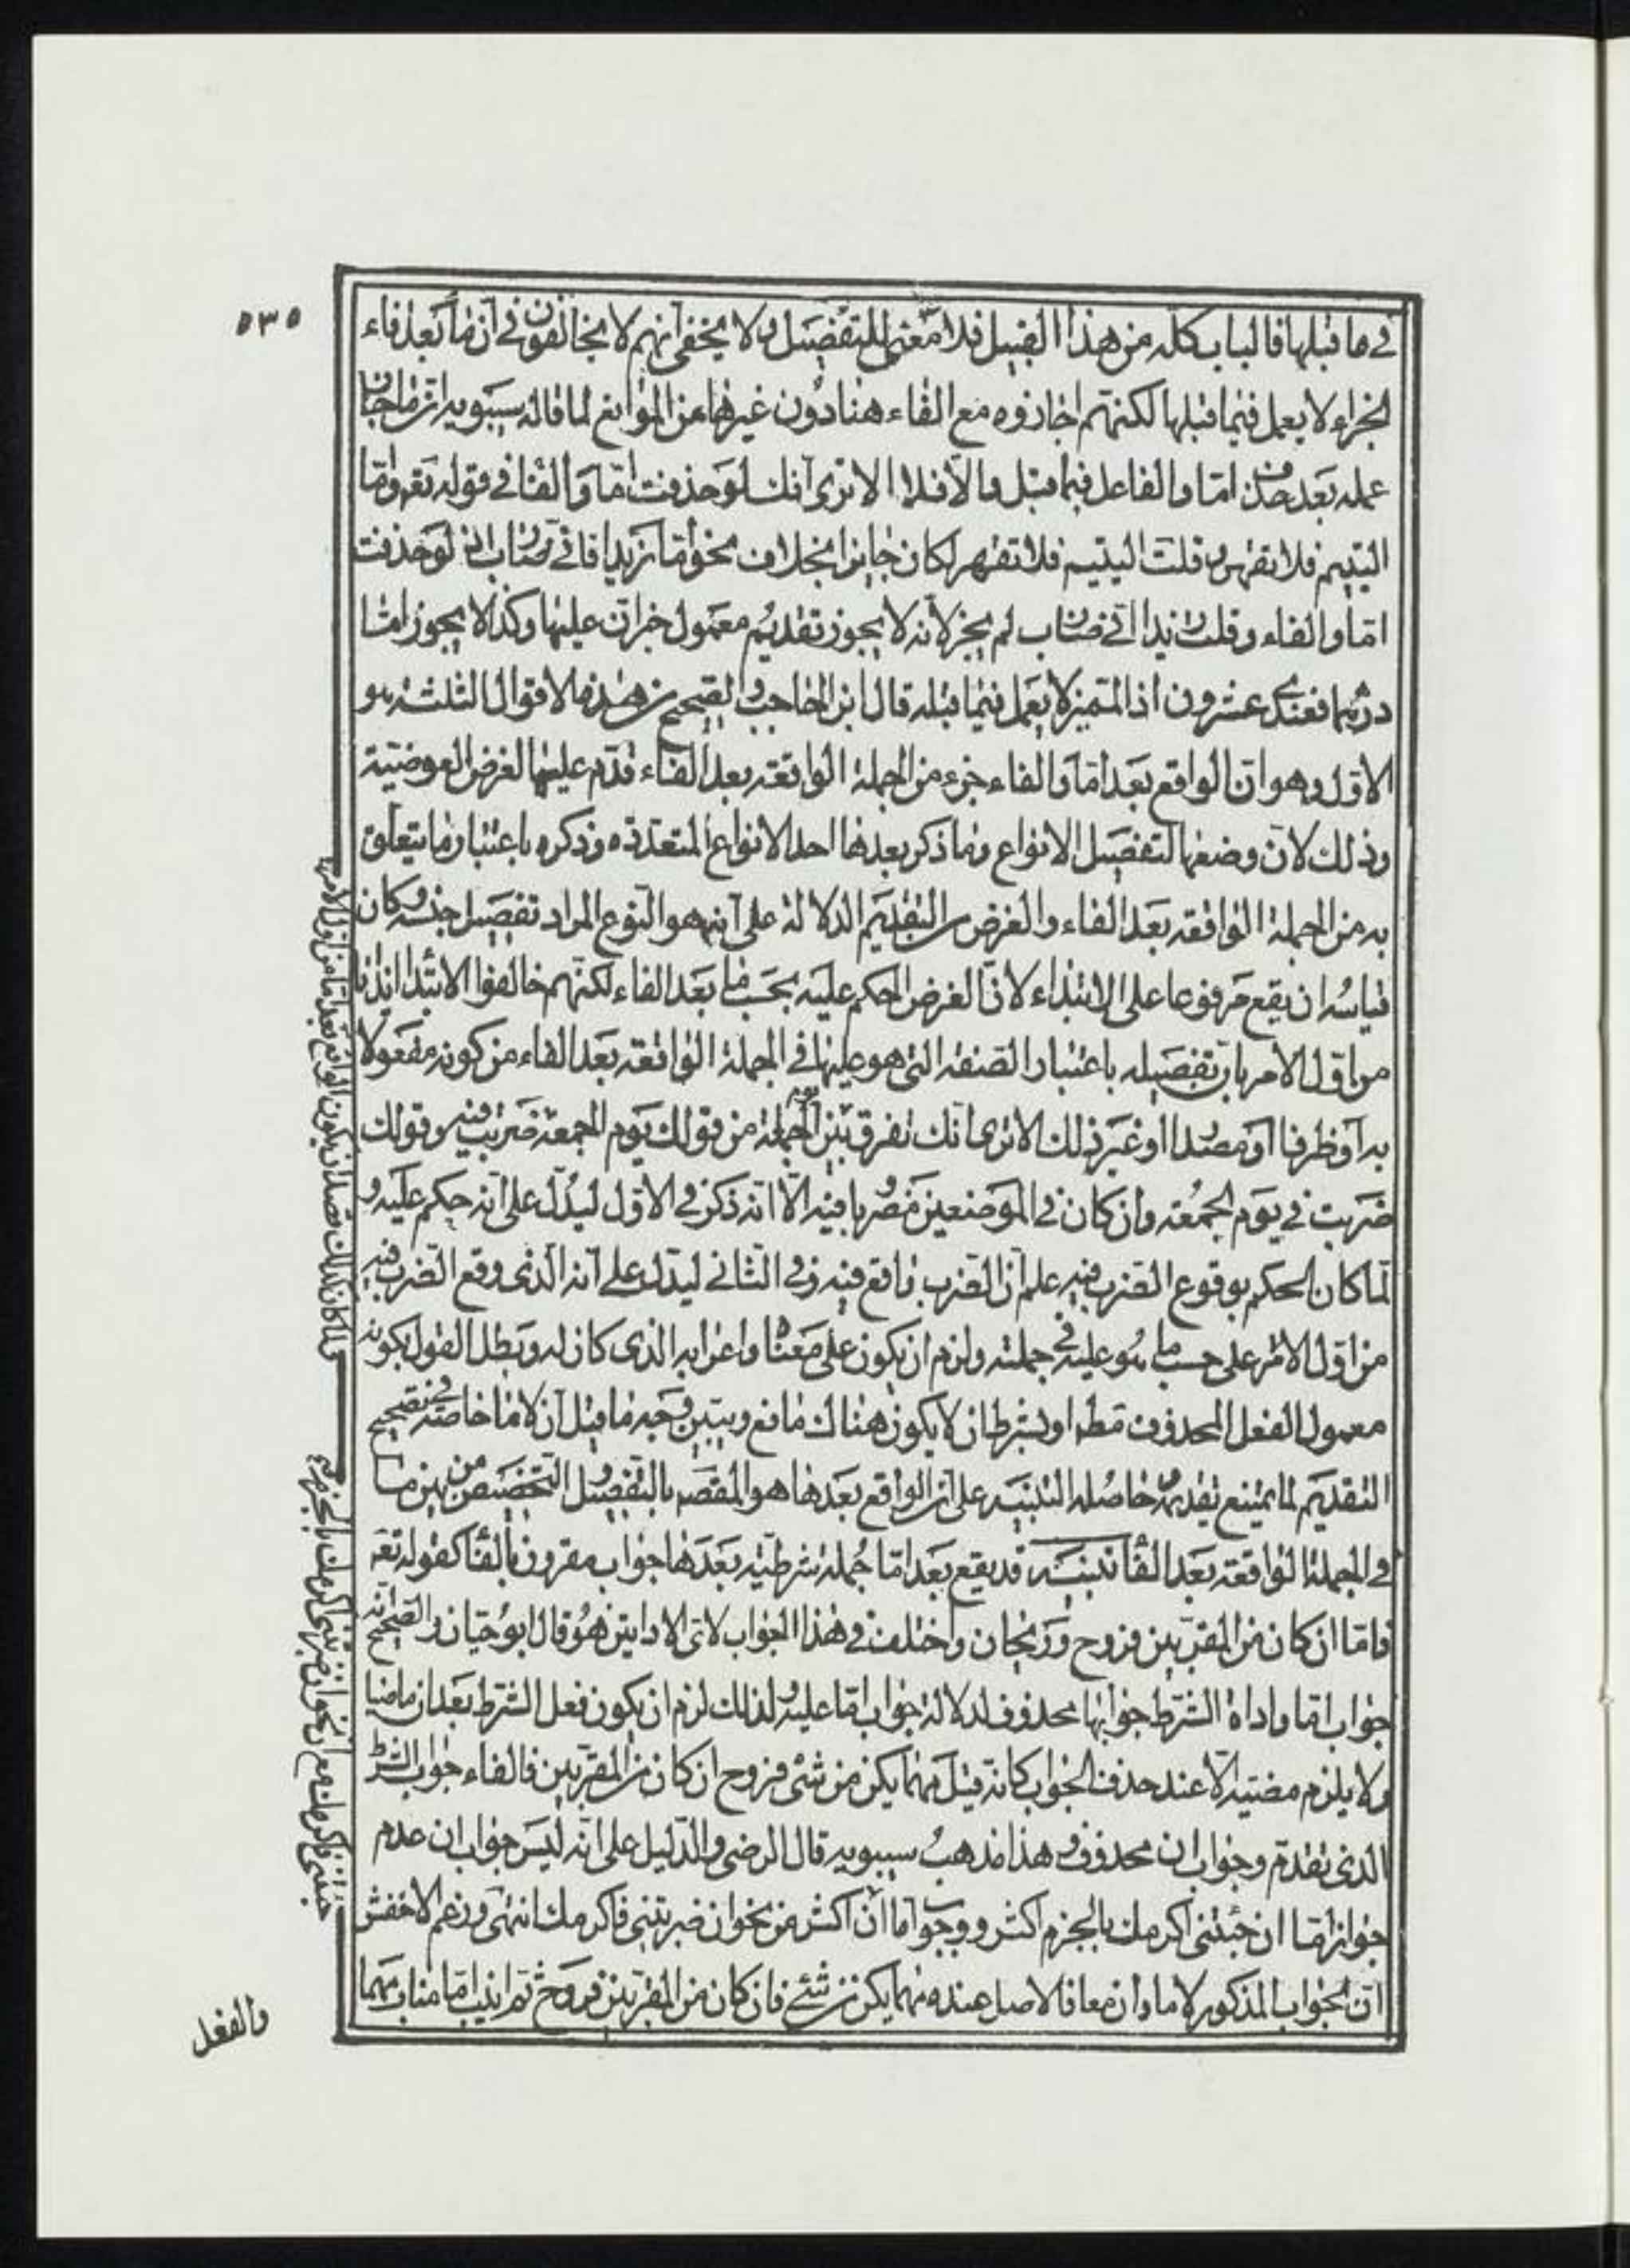 ٥٣٥
في ما قبلها فالباب كله من هذا القبيل فلا معنى للتفصيل ولا يخفى انهم لا يخالفون في ان ما بعد فاء
الجزاء لا يعمل فيما قبلها لكنهم اجازوه مع الفاء هنا دون غيرها من المواضع لما قاله سيبويه ان ما جاز
عمله بعد حذف اما والفاء عمل فيما قبل والا فلا الا ترى انك لو حذفت اما والفاء في قوله تعه واما
اليتيم فلا تقهر وقلت اليتيم فلا تقهر لكان جايزا بخلاف نحو اما زيدا فاني ضارب اذ لو حذفت
اما والفاء وقلت زيدا اني ضارب لم يجز لانه لا يجوز تقديم معمول خبر ان عليها وكذا لا يجوز اما
درهما فعندي عشرون اذ المميز لا يعمل فيما قبله قال ابن الحاجب والصحيح من هذه الاقوال الثلثه هو
الاول وهو ان الواقع بعد اما والفاء جزء من الجملة الواقعه بعد الفاء قدم عليها لغرض العوضية
وذلك لان وضعها لتفصيل الانواع وما ذكر بعدها احد الانواع المتعدده وذكره باعتبار ما يتعلق
به من الجملة الواقعه بعد الفاء والغرض من التقديم الدلالة على انه هو النوع المراد تفصيل جنسه وكان
قياسه ان يقع مرفوعا على الابتداء لان الغرض الحكم عليه بحسب ما بعد الفاء لكنهم خالفوا الابتدا ايذانا
من اول الامر بان تفصيله باعتبار الصفة التي هو عليها في الجملة الواقعة بعد الفاء من كونه مفعولا
به او ظرفا او مصدرا او غير ذلك الا ترى انك تفرق بين الجملة من قولك يوم الجمعة ضربت فيه وقولك
ضربت في يوم الجمعه وان كان في الموضعين مضروبا فيه الا انه ذكر في الاول ليدل على انه حكم عليه و
لما كان الحكم بوقوع الضرب فيه علم ان الضرب واقع فيه وفي الثاني ليدل على انه الذي وقع الضرب فيه
من اول الامر على حسب ما هو عليه في جملته ولزم ان يكون على معناه واعرابه الذي كان له وبطل القول بكونه
معمول الفعل المحذوف مطه او بشرط ان لا يكون هناك مانع وبتبين وجه ما قيل ان لاما خاصه في تصحيح
التقديم لما يمتنع تقديمه حاصله التنبيه على ان الواقع بعدها هو المقصود بالتفصيل والتخصيص من بين ما
في الجملة الواقعة بعد الفا تنبيه قد يقع بعد اما جمله شرطيه بعدها جواب مقرون بالفا كقوله تعه
فاما ان كان من المقربين فروح وريحان واختلف في هذا الجواب لاى الاداتين هو قال ابو حيان والصحيح انه
جواب اما واداة الشرط جوابها محذوف لدلالة جواب اما عليه ولذلك لزم ان يكون فعل الشرط بعد ان ماضيا
ولا يلزم مضيه الا عند حذف الجواب كانه قيل مهما يكن من شئ فروح ان كان من المقربين فالفاء جواب الشرط
الذي تقدم وجواب ان محذوف وهذا مذهب سيبويه قال الرضي والدليل على انه ليس جواب ان عدم
جواز اما ان جئتني اكرمك بالجزم اكثر ووجوب اما ان اكثر من نحو ان ضربتني فاكرمك انتهى وزعم الاخفش
ان الجواب المذكور لاما وان معا فالاصل عنده مهما يكن من شئ فان كان من المقربين فروح ثم انيب اما مناب مهما
والفعل